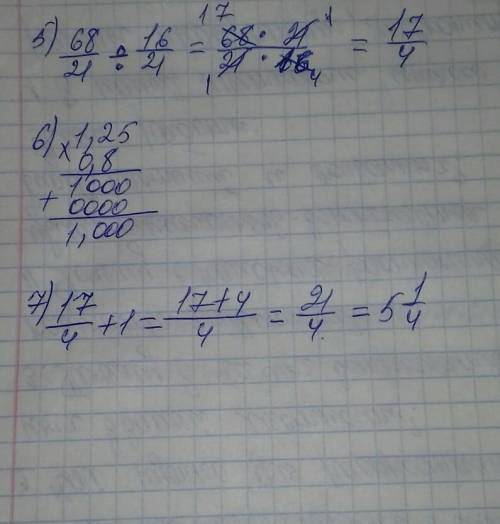 5) 68/21 ÷ 16/21 = 17 68 · 21 1 / 1 21 · 16 4 = 17/4
6) × 1,25
0,8
1000
+ 0000
1,000
7) 17/4 + 1 = 17+4/4 = 21/4 = 5 1/4